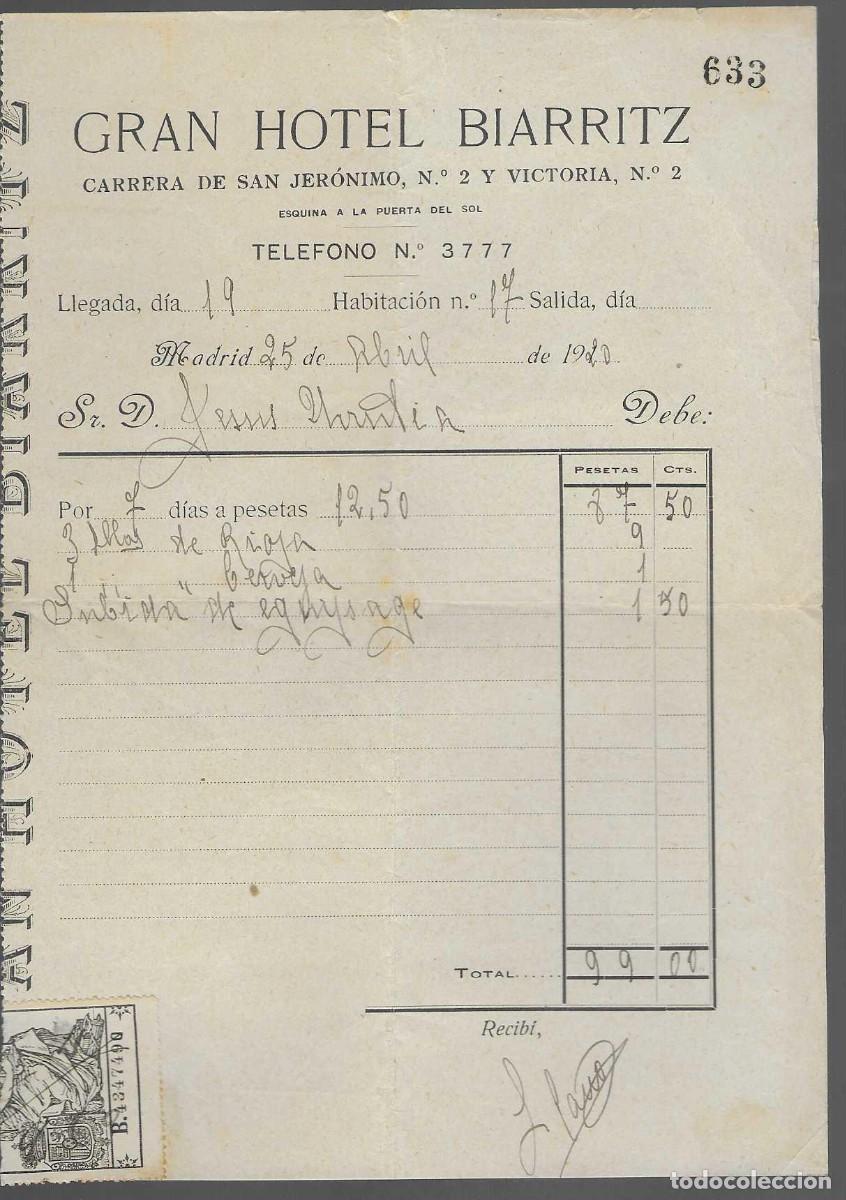 633
GRAN HOTEL BIARRITZ
CARRERA DE SAN JERÓNIMO, N.º 2 Y VICTORIA, N.º 2
ESQUINA A LA PUERTA DEL SOL
TELEFONO N.º 3777
Llegada, día 19 Habitación n.º 17 Salida, día
Madrid 25 de Abril de 1920
Sr. D. Jesus Urrutia Debe:
PESETAS CTS.
Por 7 días a pesetas 12,50 87 50
3 Bllas de Rioja 9
1 " " Cerveja 1
Subida de equipage 1 50
TOTAL...... 99 00
Recibí,
AN HOTEL BIARRITZ
B.4347490
todocoleccion